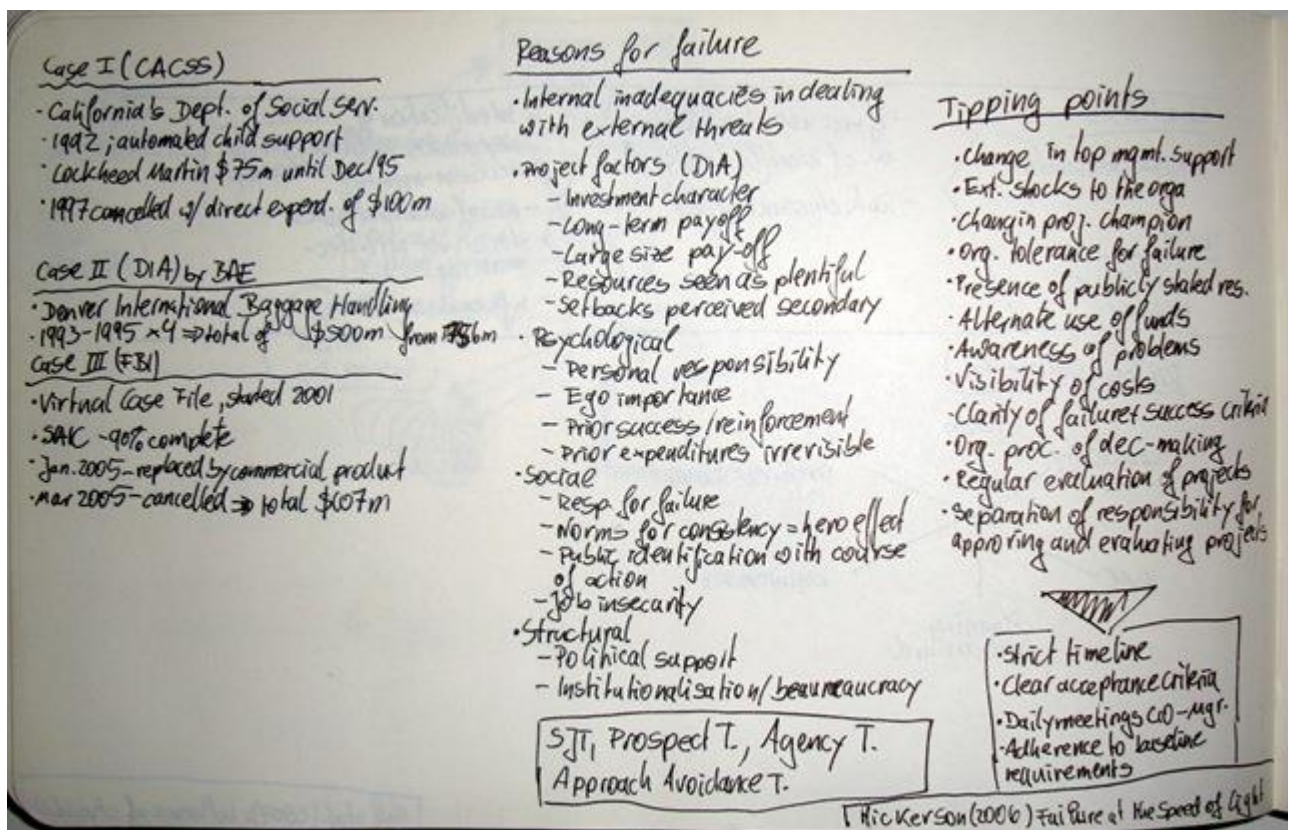 Case I (CACSS)
· California's Dept. of Social Serv.
· 1992 ; automated child support
· Lockheed Martin $75m until Dec/95
· 1997 cancelled w/ direct expend. of $100m
Case II (DIA) by BAE
· Denver International Baggage Handling
· 1993-1995 x4 ⇒ total of $500m from
Case III (FBI)
· Virtual Case File, started 2001
· SAIC - 90% complete
· Jan. 2005 - replaced by commercial product
· Mar 2005 - cancelled ⇒ total $607m
Reasons for failure
· Internal inadequacies in dealing
with external threats
· Project factors (DIA)
- Investment character
- Long-term payoff
- Large size pay-off
- Resources seen as plentiful
- Setbacks perceived secondary
· Psychological
- Personal responsibility
- Ego importance
- Prior success / reinforcement
- Prior expenditures irrevisible
· Social
- Resp. for failure
- Norms for consistency = hero effect
- Public identification with course
of action
- Job insecurity
· Structural
- Political support
- Institutionalisation / beaureaucracy
SJT, Prospect T., Agency T.
Approach Avoidance T.
Tipping points
· Change in top mgmt. support
· Ext. shocks to the orga
· Chang in proj. champion
· Org. tolerance for failure
· Presence of publicly stated res.
· Alternate use of funds
· Awareness of problems
· Visibility of costs
- Clarity of failure + success criteria
· Org. proc. of dec-making
· Regular evaluation of projects
· Separation of responsibility for
approving and evaluating projects
· Strict timeline
· Clear acceptance criteria
· Daily meetings CIO - Mgr.
· Adherence to baseline
requirements
(2006) Failure at the Speed of Light